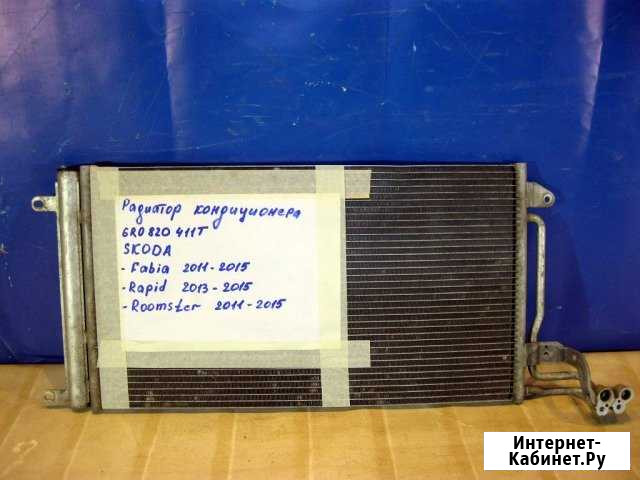 Радиатор кондиционера
6R0 820 411T
SKODA
- Fabia 2011-2015
- Rapid 2013-2015
- Roomster 2011-2015
Интернет-
Кабинет.Ру